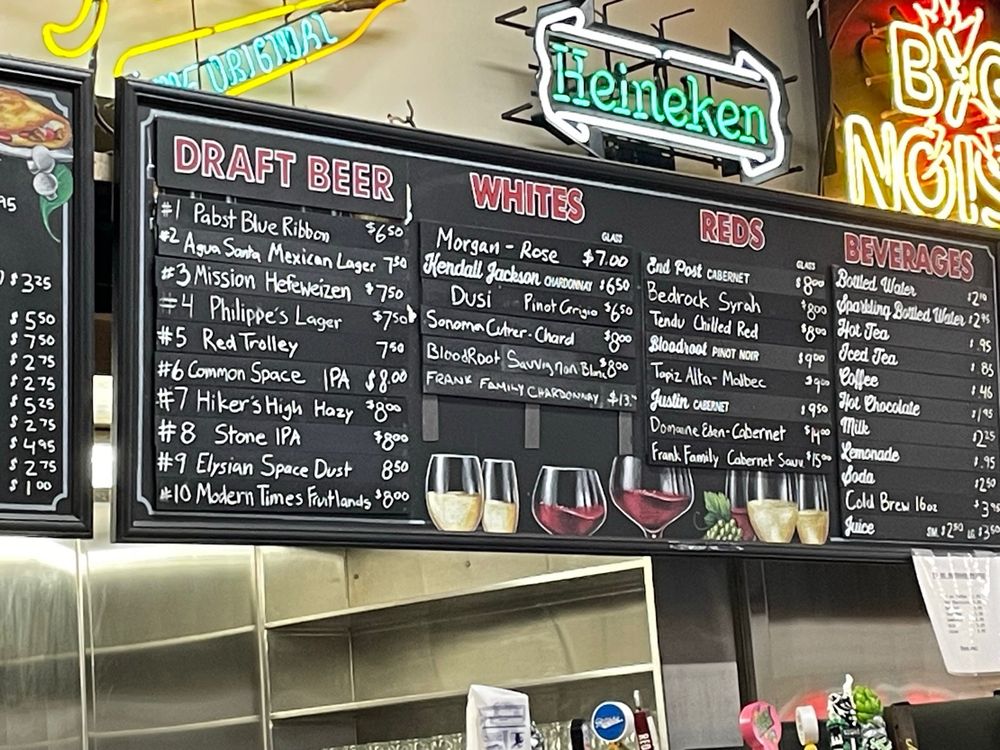 ORIGINAL
Heineken
BIG
NOIS
DRAFT BEER
#1 Pabst Blue Ribbon $6.50
#2 Agua Santa Mexican Lager 7.50
#3 Mission Hefeweizen $7.50
#4 Philippe's Lager $7.50
#5 Red Trolley 7.50
#6 Common Space IPA $8.00
#7 Hiker's High Hazy $8.00
#8 Stone IPA $8.00
#9 Elysian Space Dust 8.50
#10 Modern Times Fruitlands $8.00
WHITES
GLASS
Morgan - Rose $7.00
Kendall Jackson CHARDONNAY $6.50
Dusi Pinot Grigio $6.50
Sonoma Cutrer-Chard $8.00
BloodRoot Sauvignon Blanc $8.00
FRANK FAMILY CHARDONNAY $13.
REDS
GLASS
End Post CABERNET $8.00
Bedrock Syrah $8.00
Tendu Chilled Red $8.00
Bloodroot PINOT NOIR $9.00
Tapiz Alta-Malbec $9.00
Justin CABERNET $9.50
Domaine Eden-Cabernet $14.00
Frank Family Cabernet Sauv $15.00
BEVERAGES
Bottled Water
Sparkling Bottled Water $2.95
Hot Tea $.95
Iced Tea $.85
Coffee $.46
Hot Chocolate
Milk $2.25
Lemonade $.95
Soda $2.50
Cold Brew 16oz
Juice SM. $2.50 LG. $3.50
$3.25
$5.50
$7.50
$2.75
$2.75
$5.25
$2.75
$4.95
$2.75
$1.00